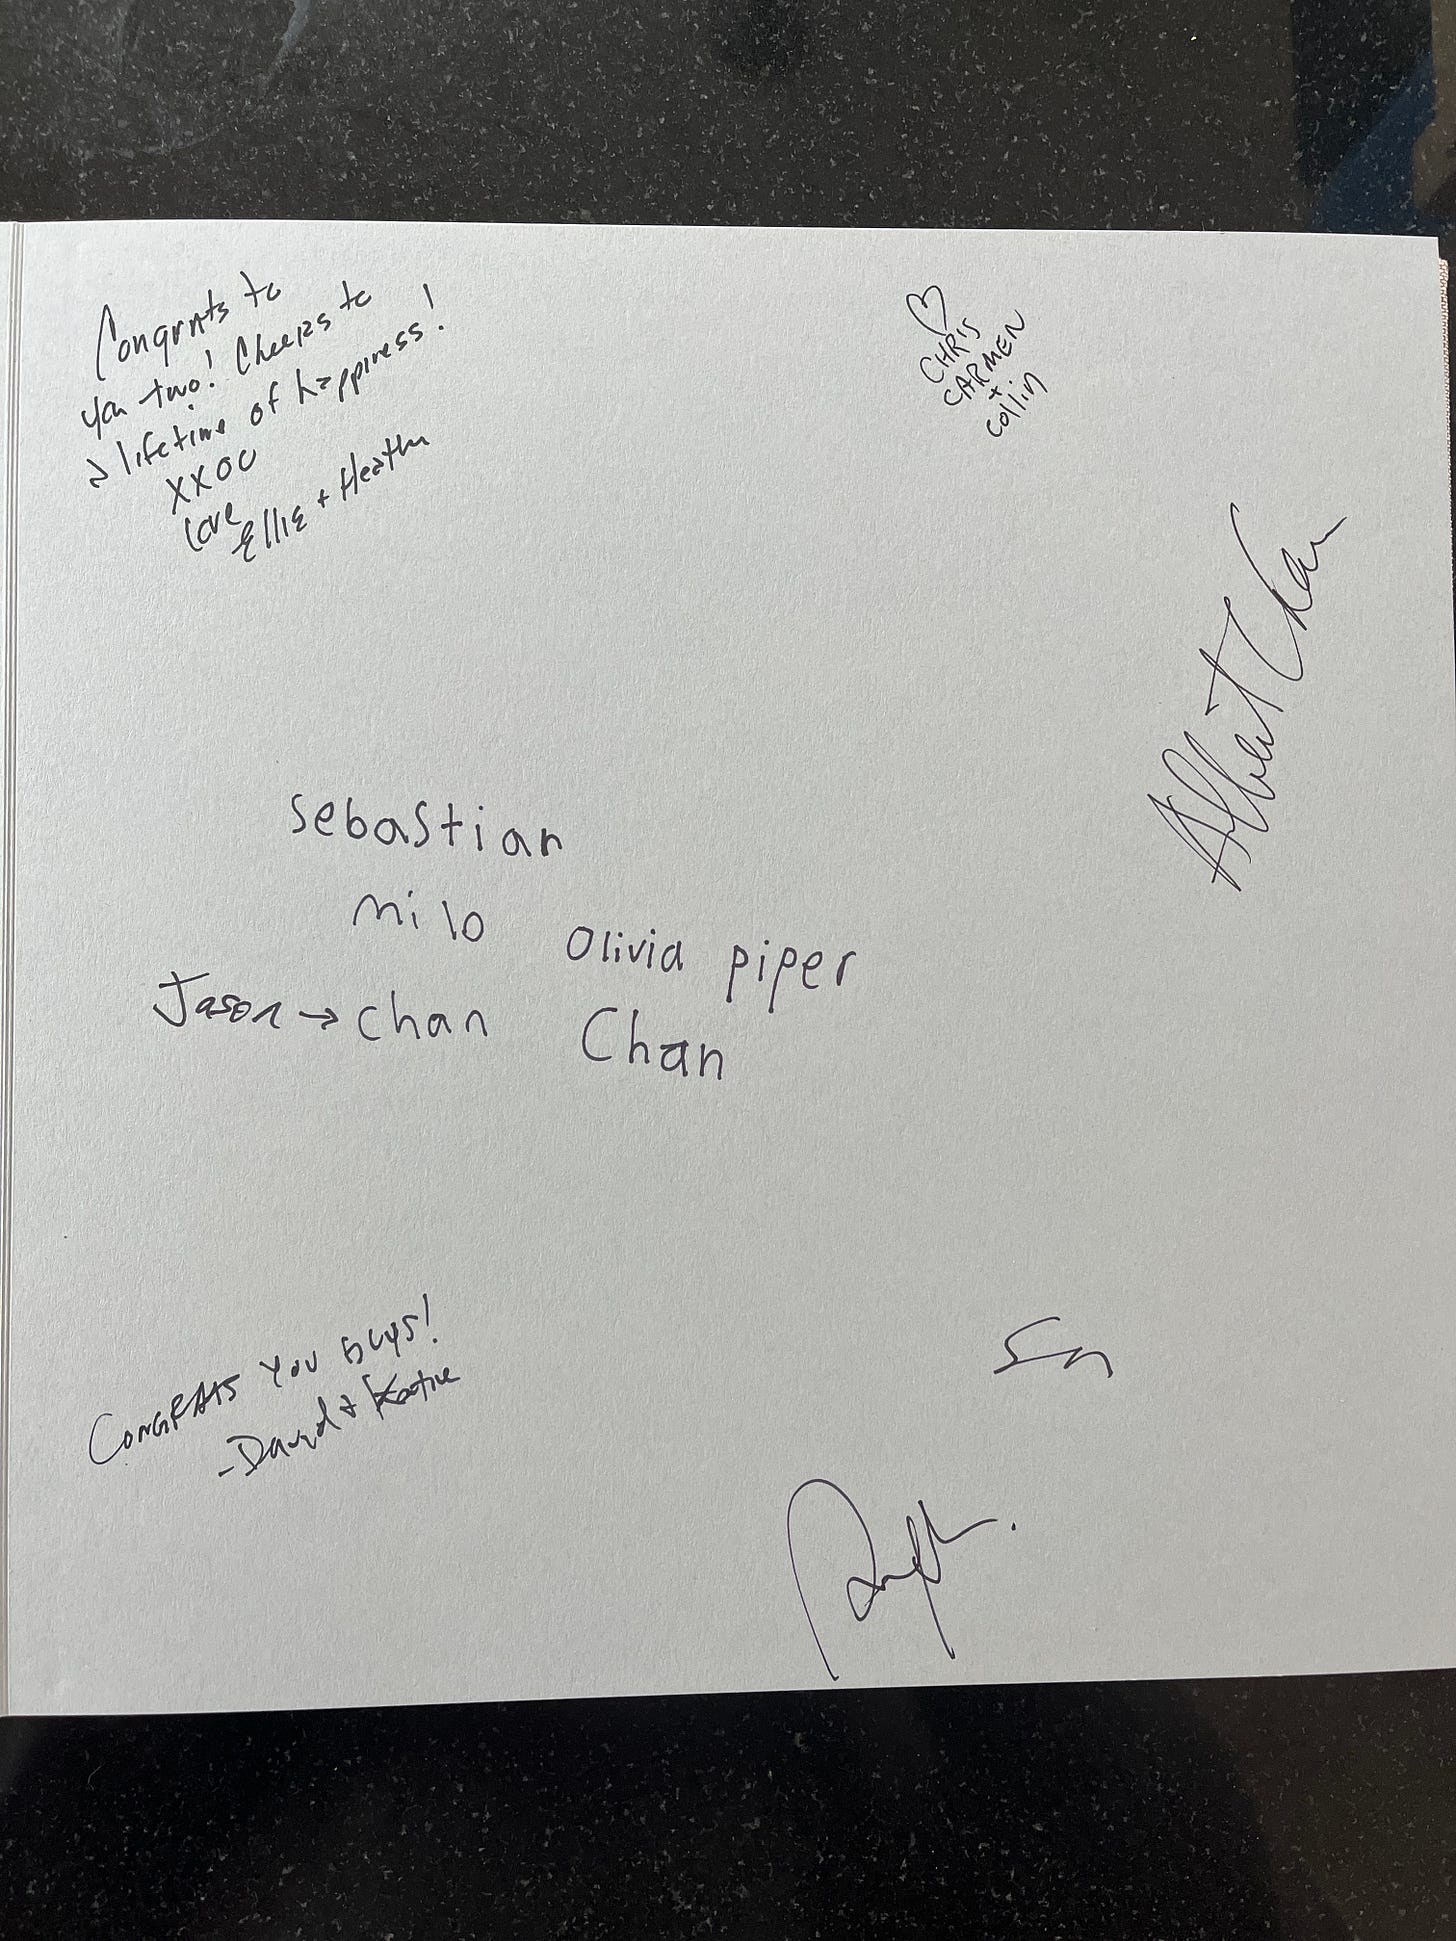 Congrats to
you two! Cheers to
a lifetime of happiness!
XXOO
Love
Ellie + Heather
♡
CHRIS
CARMEN
+
Collin
Albert Chan
Sebastian
milo
Jason → chan
Olivia piper
Chan
CONGRATS YOU GUYS!
- David + Katie